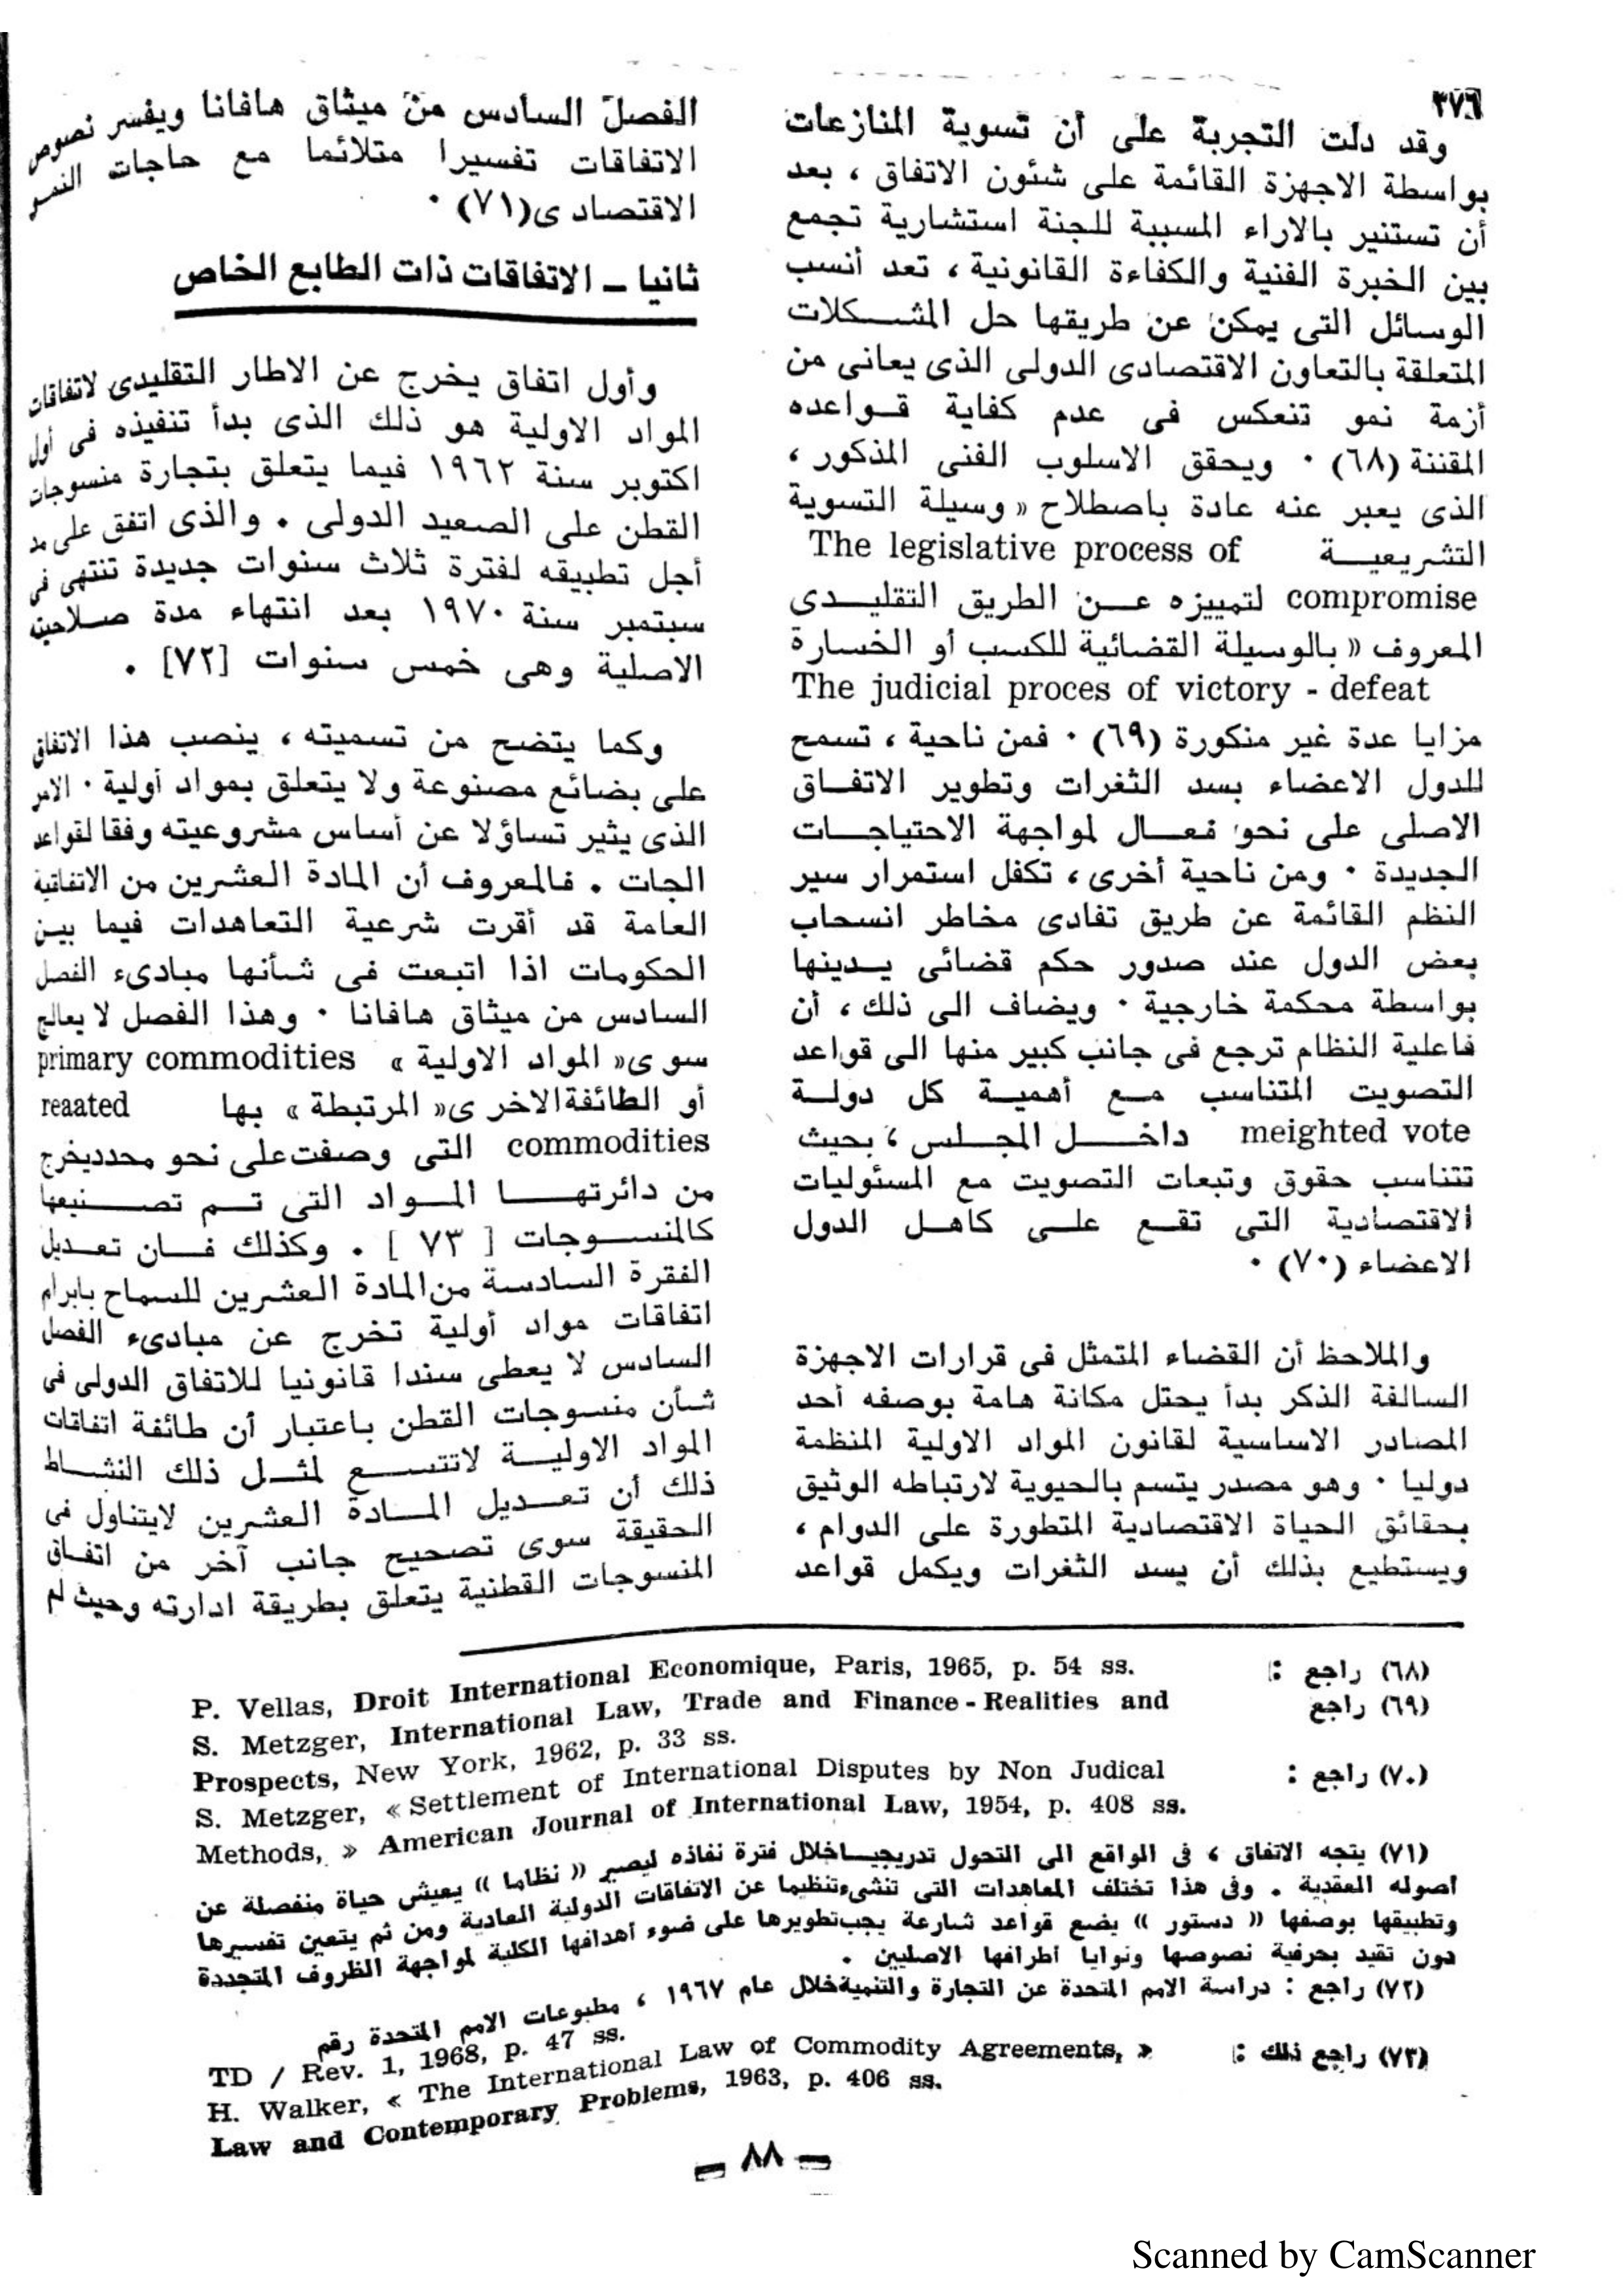 ٣٧٦
وقد دلت التجربة على أن تسوية المنازعات
بواسطة الاجهزة القائمة على شئون الاتفاق ، بعد
أن تستنير بالاراء المسببة للجنة استشارية تجمع
بين الخبرة الفنية والكفاءة القانونية ، تعد أنسب
الوسائل التى يمكن عن طريقها حل المشـــكلات
المتعلقة بالتعاون الاقتصادى الدولى الذى يعانى من
أزمة نمو تنعكس فى عدم كفاية قـواعده
المقننة (٦٨) · ويحقق الاسلوب الفنى المذكور ،
الذى يعبر عنه عادة باصطلاح « وسيلة التسوية
التشريعيـــة The legislative process of
compromise لتمييزه عــن الطريق التقليــدى
المعروف « بالوسيلة القضائية للكسب أو الخسارة
The judicial proces of victory - defeat
مزايا عدة غير منكورة (٦٩) · فمن ناحية ، تسمح
للدول الاعضاء بسد الثغرات وتطوير الاتفــاق
الاصلى على نحو فعــال لمواجهة الاحتياجــات
الجديدة · ومن ناحية أخرى ، تكفل استمرار سير
النظم القائمة عن طريق تفادى مخاطر انسحاب
بعض الدول عند صدور حكم قضائى يــدينها
بواسطة محكمة خارجية · ويضاف الى ذلك ، أن
فاعلية النظام ترجع فى جانب كبير منها الى قواعد
التصويت المتناسب مــع أهميــة كل دولــة
meighted vote داخـــل المجـلس ، بحيث
تتناسب حقوق وتبعات التصويت مع المسئوليات
الاقتصادية التى تقــع علــى كاهــل الدول
الاعضاء (٧٠) ·
والملاحظ أن القضاء المتمثل فى قرارات الاجهزة
السالفة الذكر بدأ يحتل مكانة هامة بوصفه أحد
المصادر الاساسية لقانون المواد الاولية المنظمة
دوليا · وهو مصدر يتسم بالحيوية لارتباطه الوثيق
بحقائق الحياة الاقتصادية المتطورة على الدوام ،
ويستطيع بذلك أن يسد الثغرات ويكمل قواعد
الفصل السادس من ميثاق هافانا ويفسر نصوص
الاتفاقات تفسيرا متلائما مع حاجات النمو
الاقتصادى(٧١) ·
ثانيا ـ الاتفاقات ذات الطابع الخاص
وأول اتفاق يخرج عن الاطار التقليدى لاتفاقات
المواد الاولية هو ذلك الذى بدأ تنفيذه فى أول
اكتوبر سنة ١٩٦٢ فيما يتعلق بتجارة منسوجات
القطن على الصعيد الدولى . والذى اتفق على مد
أجل تطبيقه لفترة ثلاث سنوات جديدة تنتهى فى
سبتمبر سنة ١٩٧٠ بعد انتهاء مدة صــلاحيته
الاصلية وهى خمس سنوات [٧٢] .
وكما يتضح من تسميته ، ينصب هذا الاتفاق
على بضائع مصنوعة ولا يتعلق بمواد أولية · الامر
الذى يثير تساؤلا عن أساس مشروعيته وفقا لقواعد
الجات . فالمعروف أن المادة العشرين من الاتفاقية
العامة قد أقرت شرعية التعاهدات فيما بيــن
الحكومات اذا اتبعت فى شأنها مبادىء الفصل
السادس من ميثاق هافانا · وهذا الفصل لا يعالج
سوى« المواد الاولية » primary commodities
أو الطائفة الاخرى« المرتبطة » بها reaated
commodities التى وصفت على نحو محدد يخرج
من دائرتهـــا المــواد التى تــم تصــنيعها
كالمنســوجات [ ٧٣ ] . وكذلك فــان تعــديل
الفقرة السادسة من المادة العشرين للسماح بابرام
اتفاقات مواد أولية تخرج عن مبادىء الفصل
السادس لا يعطى سندا قانونيا للاتفاق الدولى فى
شأن منسوجات القطن باعتبار أن طائفة اتفاقات
المواد الاوليــة لاتتســع لمثــل ذلك النشــاط
ذلك أن تعــديل المــادة العشرين لايتناول فى
الحقيقة سوى تصحيح جانب آخر من اتفــاق
المنسوجات القطنية يتعلق بطريقة ادارته وحيث لم
(٦٨) راجع :
P. Vellas, Droit International Economique, Paris, 1965, p. 54 ss.
(٦٩) راجع
S. Metzger, International Law, Trade and Finance - Realities and
Prospects, New York, 1962, p. 33 ss.
(٧٠) راجع :
S. Metzger, « Settlement of International Disputes by Non Judical
Methods, » American Journal of International Law, 1954, p. 408 ss.
(٧١) يتجه الاتفاق ، فى الواقع الى التحول تدريجيــا خلال فترة نفاذه ليصير « نظاما » يعيش حياة منفصلة عن
أصوله العقدية . وفى هذا تختلف المعاهدات التى تنشىء تنظيما عن الاتفاقات الدولية العادية ومن ثم يتعين تفسيرها
وتطبيقها بوصفها « دستور » يضع قواعد شارعة يجب تطويرها على ضوء أهدافها الكلية لمواجهة الظروف المتجددة
دون تقيد بحرفية نصوصها ونوايا أطرافها الاصليين .
(٧٢) راجع : دراسة الامم المتحدة عن التجارة والتنمية خلال عام ١٩٦٧ ، مطبوعات الامم المتحدة رقم
TD / Rev. 1, 1968, p. 47 ss.
(٧٣) راجع ذلك :
H. Walker, « The International Law of Commodity Agreements, »
Law and Contemporary Problems, 1963, p. 406 ss.
ـ ٨٨ ـ
Scanned by CamScanner